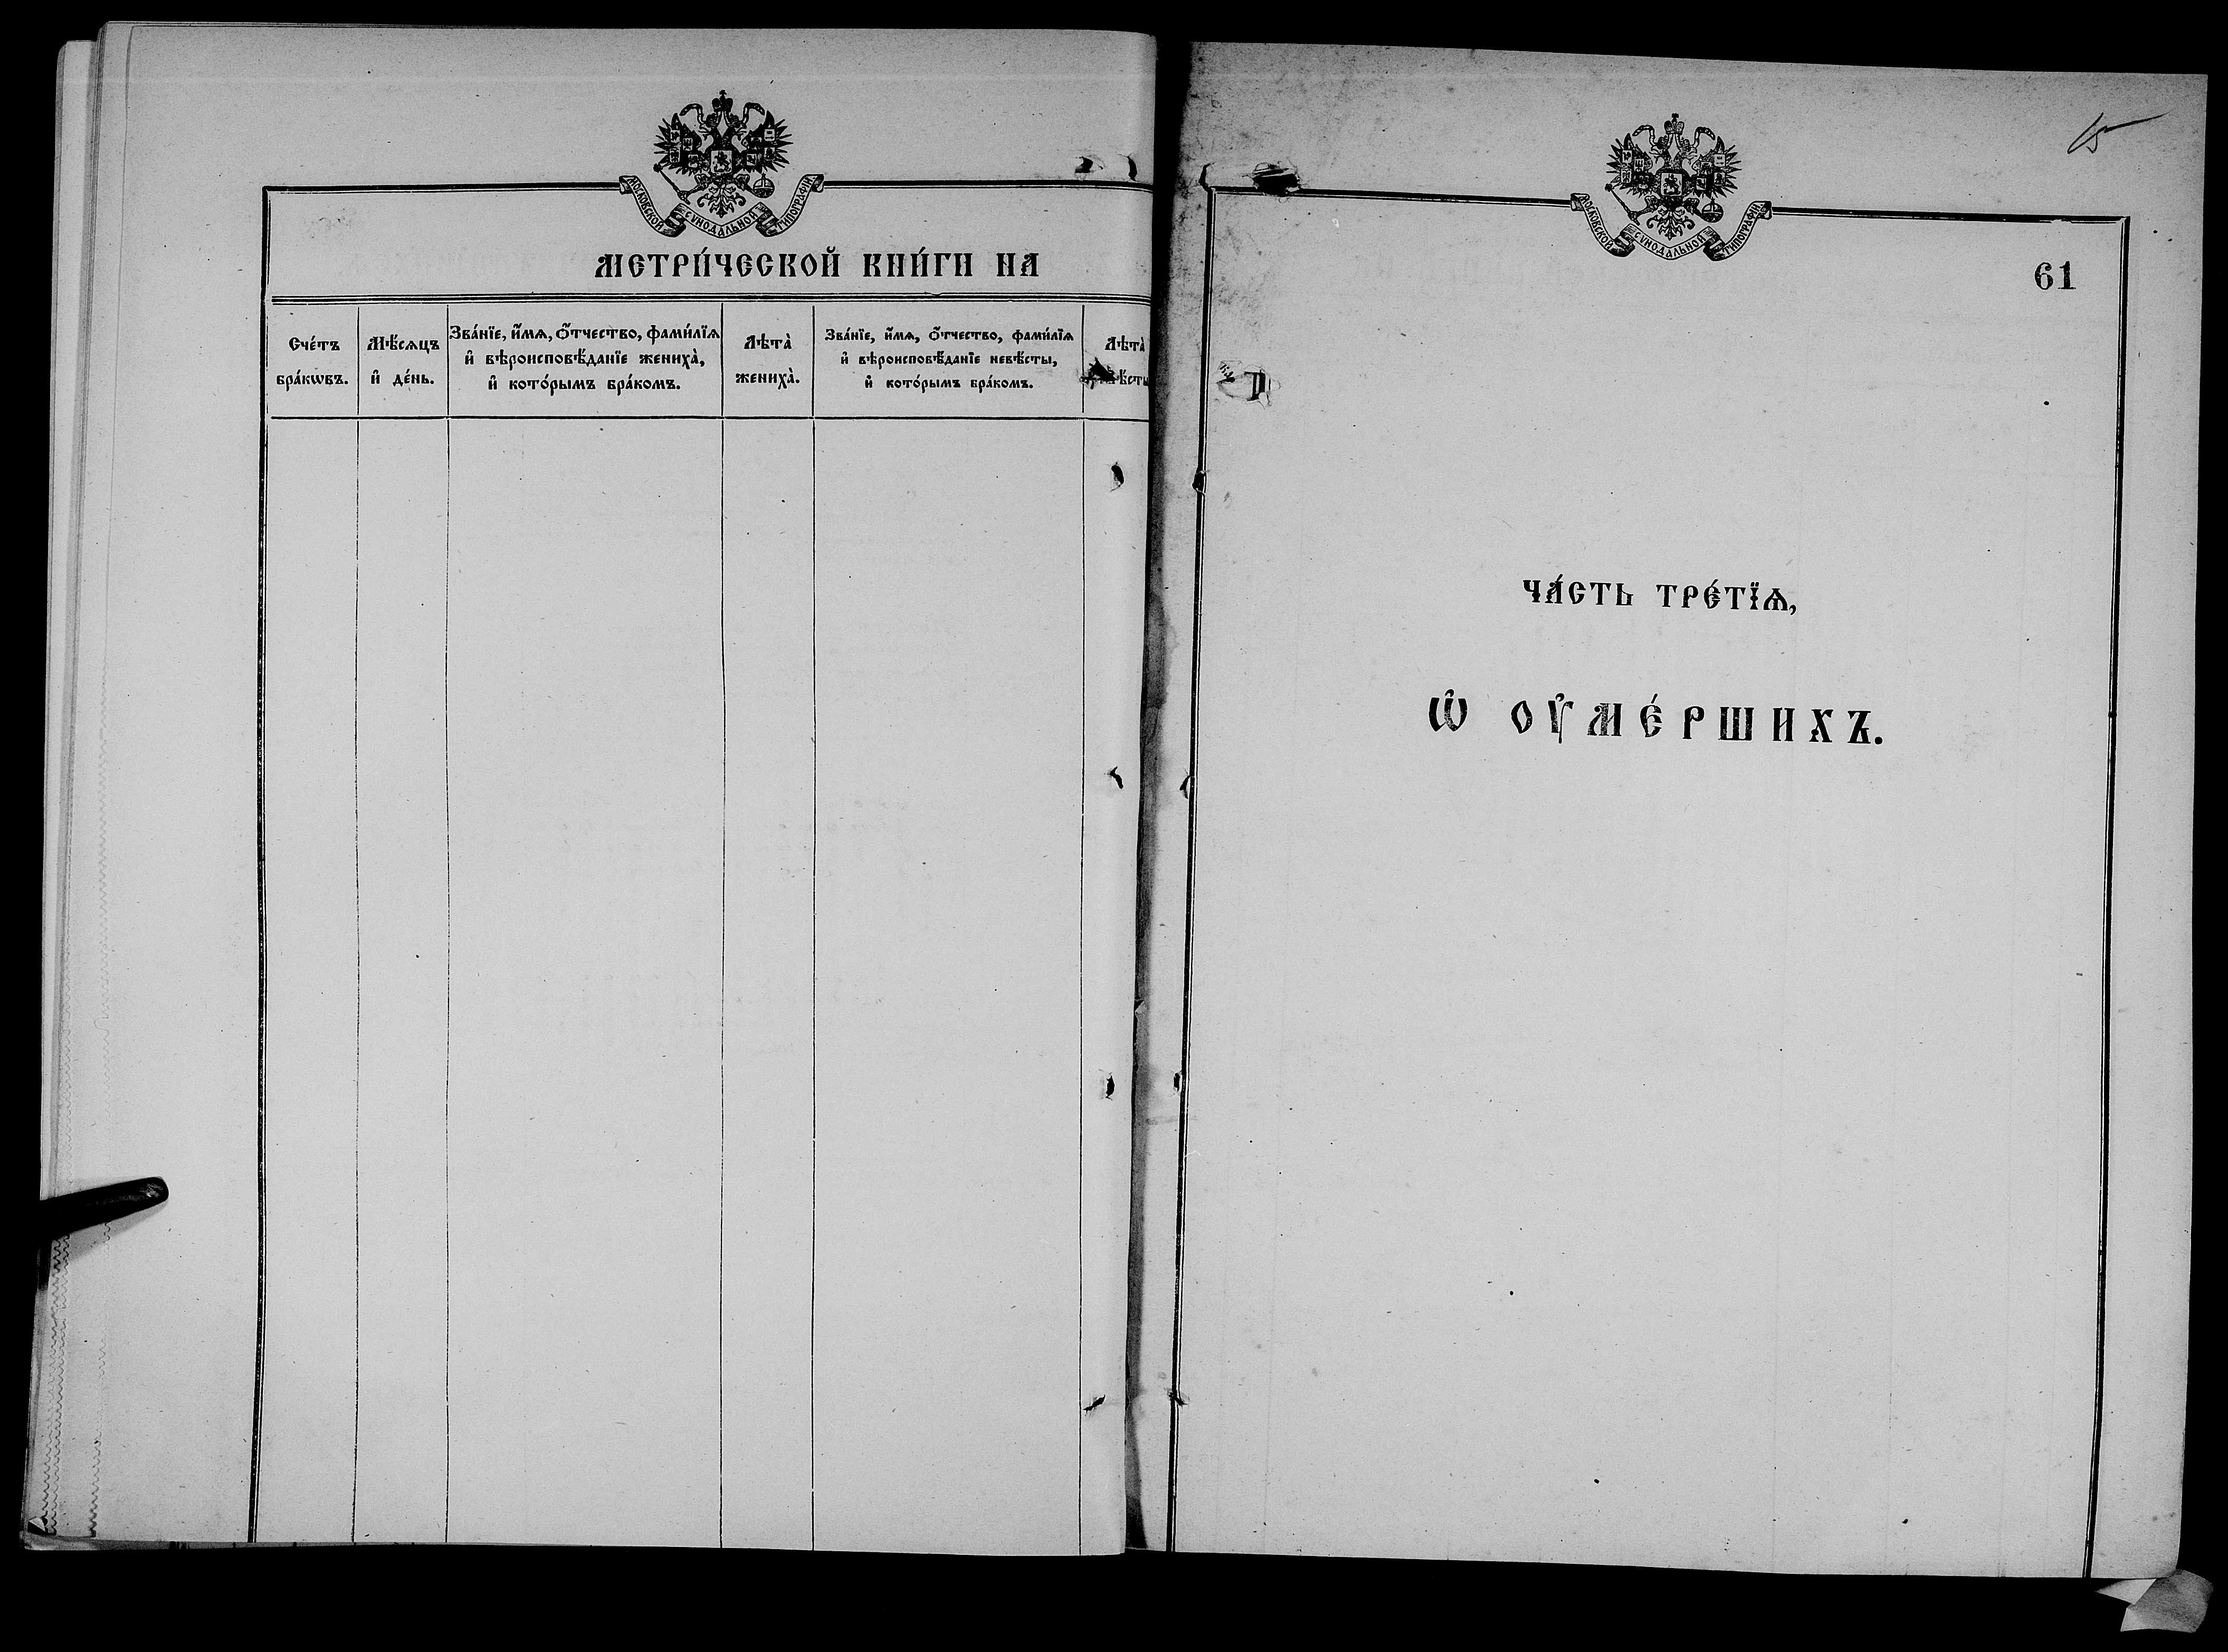 МОСКОВСКОЙ СѴНОДАЛЬНОЙ ТИПОГРАФІИ
МЕТРИ́ЧЕСКОЙ КНИ́ГИ НА
Сче́тъ бра́кѡвъ.
Мѣ́сяцъ и҆ де́нь.
Зва́нїе, и҆́мѧ, ѻ҆́тчество, фами́лїѧ
и҆ вѣроисповѣ́данїе жениха̀,
и҆ кото́рымъ бра́комъ.
Лѣта̀ жениха̀.
Зва́нїе, и҆́мѧ, ѻ҆́тчество, фами́лїѧ
и҆ вѣроисповѣ́данїе невѣ́сты,
и҆ кото́рымъ бра́комъ.
Лѣта̀
МОСКОВСКОЙ СѴНОДАЛЬНОЙ ТИПОГРАФІИ
61
ЧА́СТЬ ТРЕ́ТЇѦ,
Ѡ҆ ОУ҆МЕ́РШИХЪ.